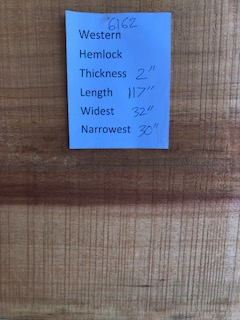 6162
Western
Hemlock
Thickness 2"
Length 117"
Widest 32"
Narrowest 30"